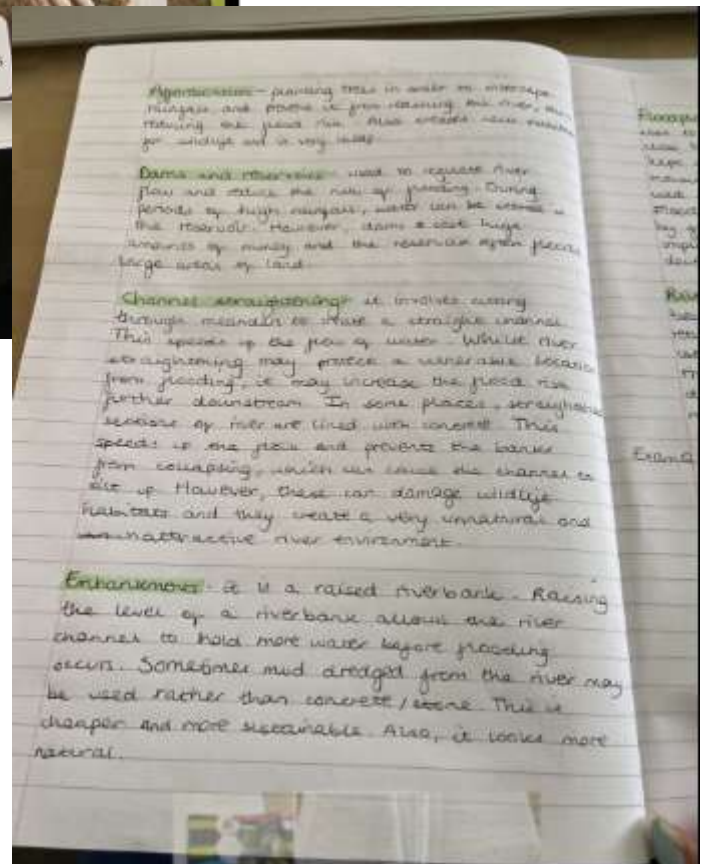 s
Afforestation - planting trees in order to intercept
rainfall and prevent it from reaching the river,
reducing the flood risk. Also creates new habitats
for wildlife and is very
Dams and reservoirs - used to regulate river
flow and reduce the risk of flooding. During
periods of high rainfall, water can be stored in
the reservoir. However, dams cost huge
amounts of money and the reservoir often floods
large areas of land.
Channel straightening - it involves cutting
through meanders to create a straight channel.
This speeds up the flow of water. Whilst river
straightening may protect a vulnerable location
from flooding, it may increase the flood risk
further downstream. In some places, straightened
sections of river are lined with concrete. This
speeds up the flow and prevents the banks
from collapsing, which can cause the channel to
silt up. However, these can damage wildlife
habitats and they create a very unnatural and
unattractive river environment.
- it is a raised riverbank. Raising
the level of a riverbank allows the river
channel to hold more water before flooding
occurs. Sometimes mud dredged from the river may
be used rather than concrete/stone. This is
cheaper and more sustainable. Also, it looks more
natural.